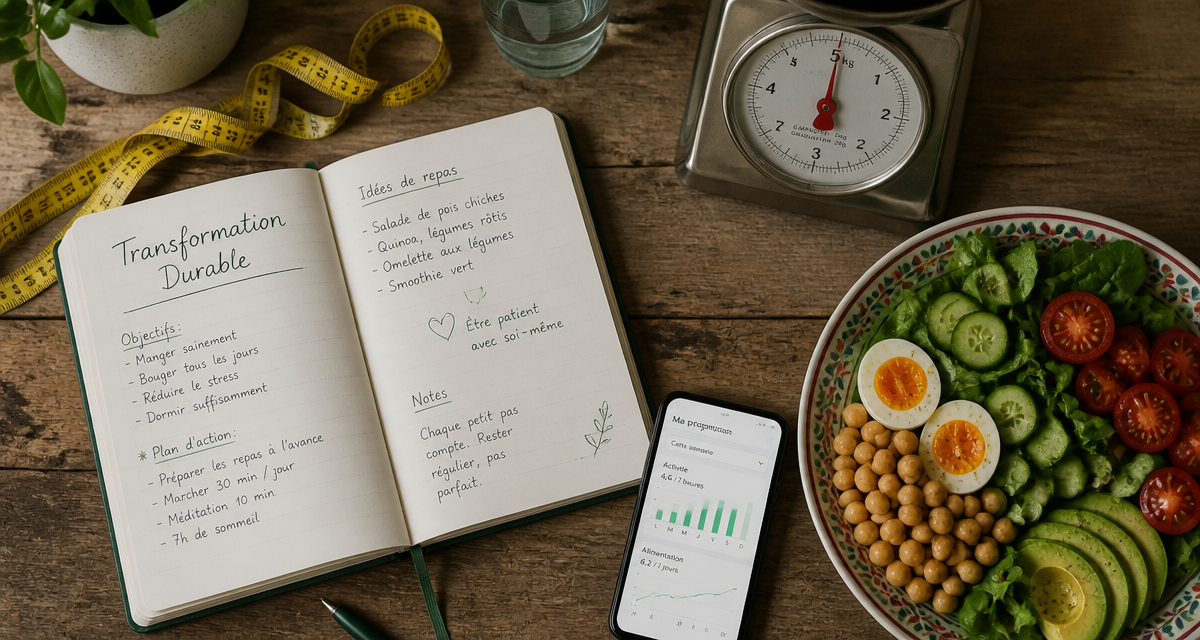 Transformation
Durable
Objectifs:
- Manger sainement
- Bouger tous les jours
- Réduire le stress
- Dormir suffisamment
* Plan d'action:
- Préparer les repas à l'avance
- Marcher 30 min / jour
- Méditation 10 min.
- 7h de sommeil
Idées de repas
- Salade de pois chiches
- Quinoa, légumes rôtis
- Omelette aux légumes
- Smoothie vert
Être patient
avec soi-même
Notes
Chaque petit pas
compte. Rester
régulier, pas
parfait.
5 kg
1
2
2
3
7
4
Ma
Cette semaine
Activité
4,6 / 7 heures
L M M J V S D
Alimentation
6,2 / 7 jours